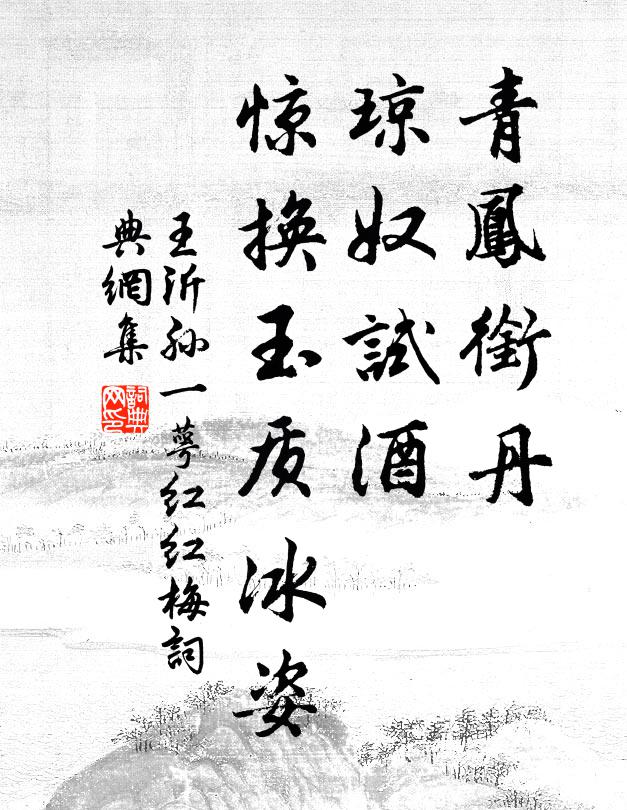 青鳳銜丹
琼奴試酒
惊换玉质冰姿
王沂孙一萼红红梅詞
典網集
詞典网印